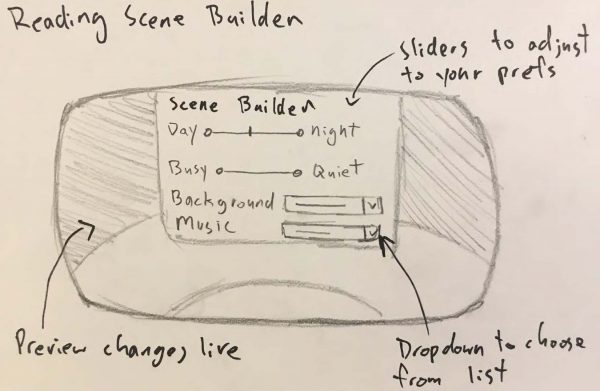 Reading Scene Builder
sliders to adjust
to your prefs
Scene Builder
Day Night
Busy Quiet
Background
Music
Preview changes live
Dropdown to choose
from list